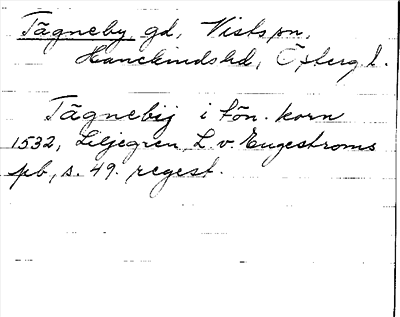 Tägneby, gd, Vists sn,
Hanekinds hd, Östergl.
Tägnebij i tön. korn
1532, Liljegren, L. v. Engeströms
pb, s. 49. regest.